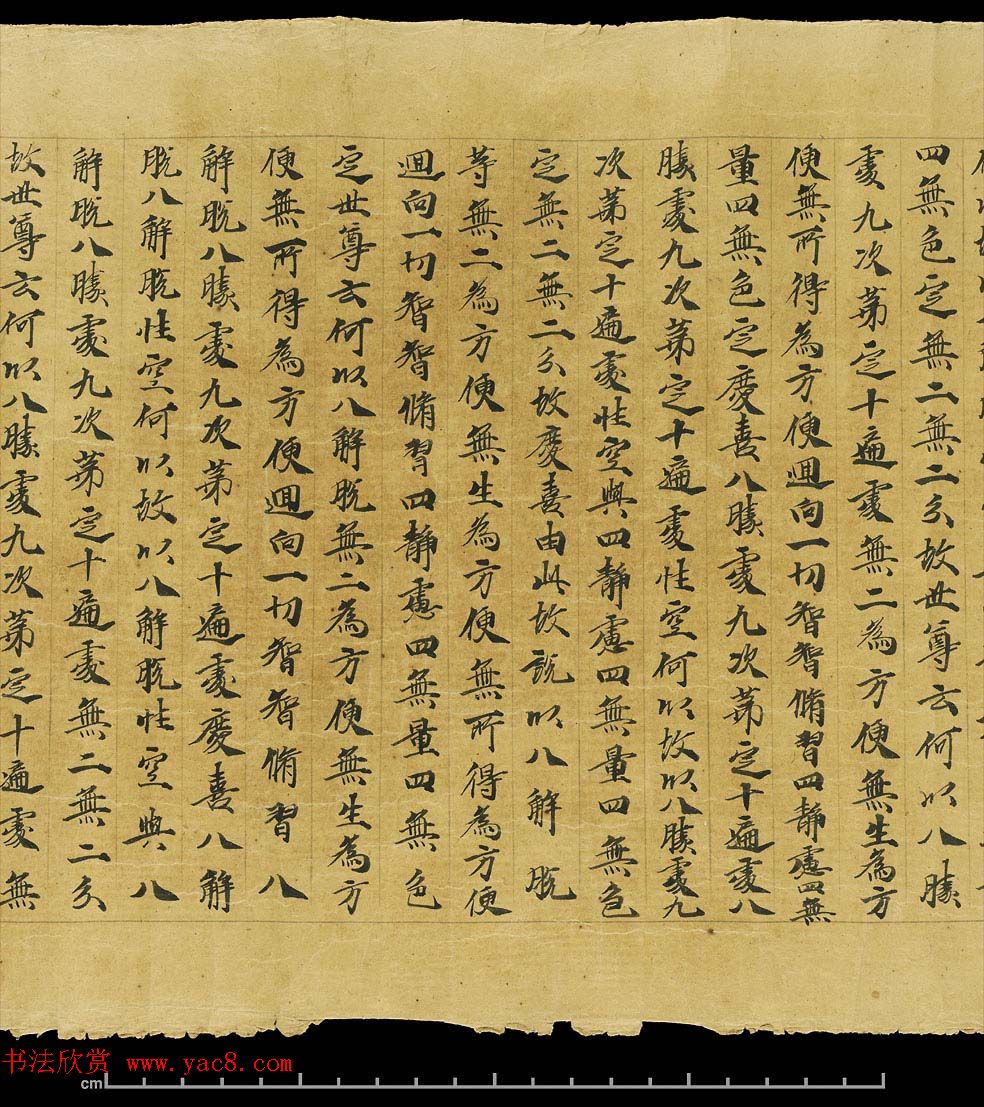 四無色定無二無二分故世尊云何以八勝
處九次第定十遍處無二為方便無生為方
便無所得為方便迴向一切智智脩習四靜慮四無
量四無色定慶喜八勝處九次第定十遍處八
勝處九次第定十遍處性空何以故以八勝處九
次第定十遍處性空與四靜慮四無量四無色
定無二無二分故慶喜由此故說以八解脫
等無二為方便無生為方便無所得為方便
迴向一切智智脩習四靜慮四無量四無色
定世尊云何以八解脫無二為方便無生為方
便無所得為方便迴向一切智智脩習八
解脫八勝處九次第定十遍處慶喜八解
脫八解脫性空何以故以八解脫性空與八
解脫八勝處九次第定十遍處無二無二分
故世尊云何以八勝處九次第定十遍處無
书法欣赏 www.yac8.com
cm